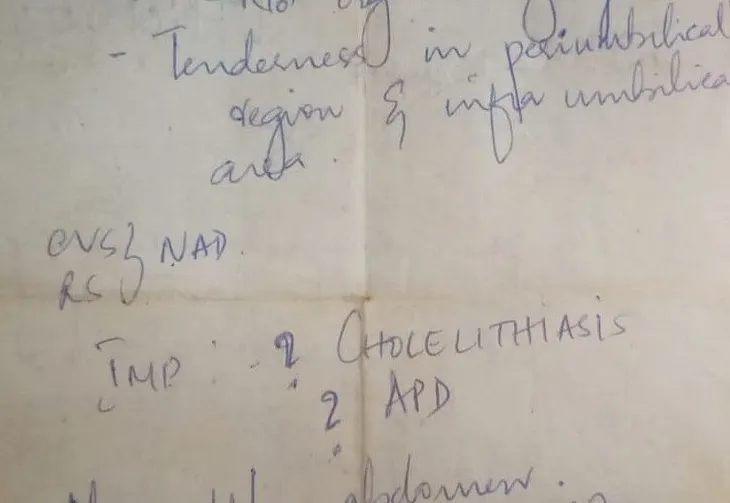 - Tenderness in periumbilical
region & infra umbilica
area.
CVS} NAD.
RS
IMP: - ? CHOLELITHIASIS
? APD
abdomen.